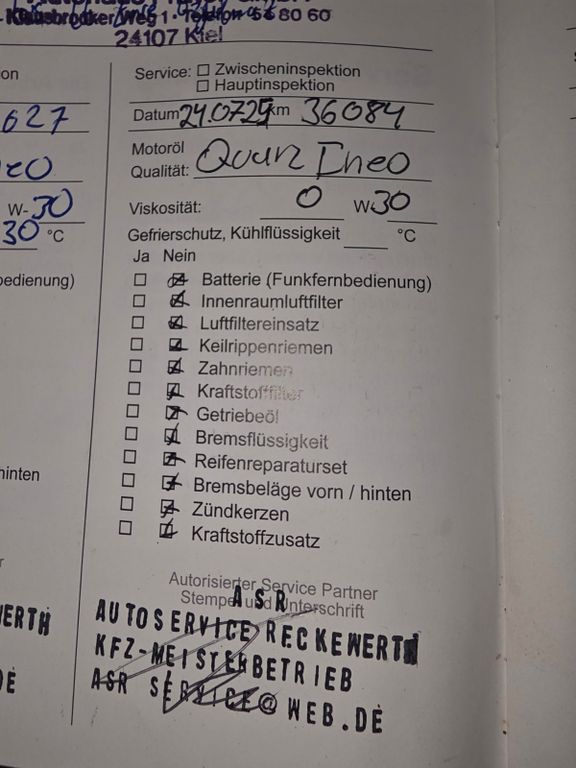 Klausbrooker Weg 1 · Telefon 54 80 60
24107 Kiel
on
627
eo
W-30
30 °C
bedienung)
hinten
WERTH
DE
Service: ☐ Zwischeninspektion
☐ Hauptinspektion
Datum 240725 km 36084
Motoröl
Qualität: Quarz Ineo
Viskosität: 0 W-30
Gefrierschutz, Kühlflüssigkeit ____ °C
Ja Nein
☐ ☒ Batterie (Funkfernbedienung)
☐ ☒ Innenraumluftfilter
☐ ☒ Luftfiltereinsatz
☐ ☒ Keilrippenriemen
☐ ☒ Zahnriemen
☐ ☒ Kraftstofffilter
☐ ☒ Getriebeöl
☐ ☒ Bremsflüssigkeit
☐ ☒ Reifenreparaturset
☐ ☒ Bremsbeläge vorn / hinten
☐ ☒ Zündkerzen
☐ ☒ Kraftstoffzusatz
Autorisierter Service Partner
Stempel und Unterschrift
ASR
AUTOSERVICE RECKEWERTH
KFZ-MEISTERBETRIEB
ASR SERVICE@WEB.DE